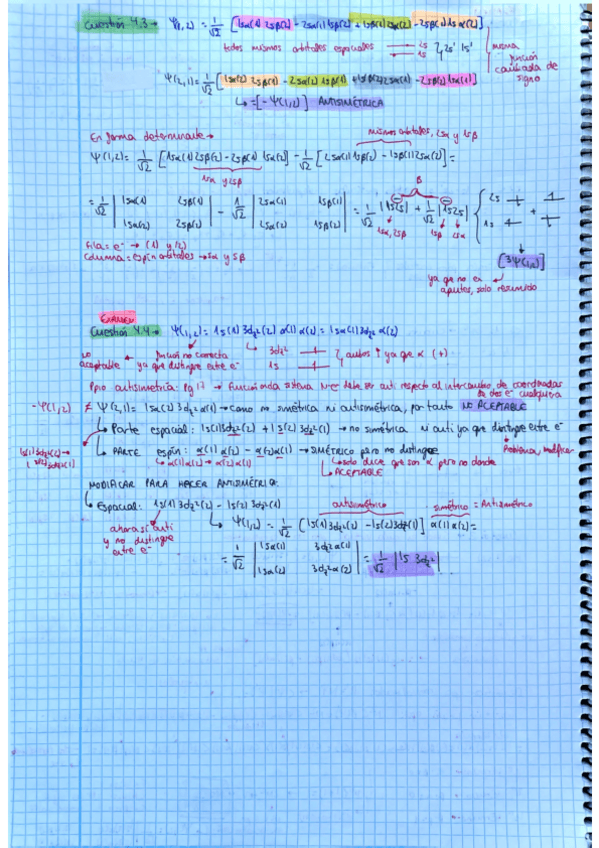 Cuestión 4.3 → Ψ(1,2) = 1/√2 [1sα(1) 2sβ(2) - 2sα(1) 1sβ(2) + 1sβ(1) 2sα(2) - 2sβ(1) 1sα(2)]
todos mismos orbitales espaciales 2s 1s } 2s' 1s' misma función cambiada de signo
Ψ(2,1) = 1/√2 [1sα(2) 2sβ(1) - 2sα(2) 1sβ(1) + 1sβ(2) 2sα(1) - 2sβ(2) 1sα(1)]
↳ = [-Ψ(1,2)] ANTISIMÉTRICA
En forma determinante →
mismos orbitales, 2sα y 1sβ
Ψ(1,2) = 1/√2 [1sα(1) 2sβ(2) - 2sβ(1) 1sα(2)] - 1/√2 [2sα(1) 1sβ(2) - 1sβ(1) 2sα(2)] =
1sα y 2sβ
= 1/√2 | 1sα(1) 2sβ(1) | - 1/√2 | 2sα(1) 1sβ(1) | = 1/√2 |1s 2s| + 1/√2 |1s 2s| { 2s
| 1sα(2) 2sβ(2) | | 2sα(2) 1sβ(2) | 1sα, 2sβ 1sβ 2sα 1s
β
Fila = e⁻ → (1) y (2)
Columna = espín orbitales → sα y sβ
[3Ψ(1,2)]
ya que no en apuntes, solo resumido
EXAMEN
Cuestión 4.4 → Ψ(1,2) = 1s(1) 3dz²(2) α(1) α(2) = 1sα(1) 3dz²α(2)
No aceptable ← función no correcta ya que distingue entre e⁻
3dz² 1s } ambos ↑ ya que α (+)
Ppio antisimetría: Pg 17 → Función onda sistema N e⁻ debe ser anti respecto al intercambio de coordenadas
de dos e⁻ cualquiera
-Ψ(1,2) ≠ Ψ(2,1) = 1sα(2) 3dz²α(1) → Como no simétrica ni antisimétrica, por tanto NO ACEPTABLE
1s(1)3dz²(2) → 1s(2)3dz²(1)
Parte espacial: 1s(1)3dz²(2) ≠ 1s(2) 3dz²(1) → no simétrica ni anti ya que distingue entre e⁻
Problema, modificar
PARTE espín: α(1) α(2) - α(2) α(1) → SIMÉTRICO pero no distingue
↳ α(1)α(2) → α(2) α(1)
↳ solo dice que son α pero no dónde
↳ ACEPTABLE
MODIFICAR PARA HACER ANTISIMÉTRICA:
↳ Espacial: 1s(1) 3dz²(2) - 1s(2) 3dz²(1)
antisimétrico simétrico = Antisimétrico
ahora sí anti y no distingue entre e⁻
↳ Ψ(1,2) = 1/√2 [1s(1) 3dz²(2) - 1s(2) 3dz²(1)] α(1) α(2) =
= 1/√2 | 1sα(1) 3dz²α(1) | = 1/√2 |1s 3dz²|
| 1sα(2) 3dz²α(2) |